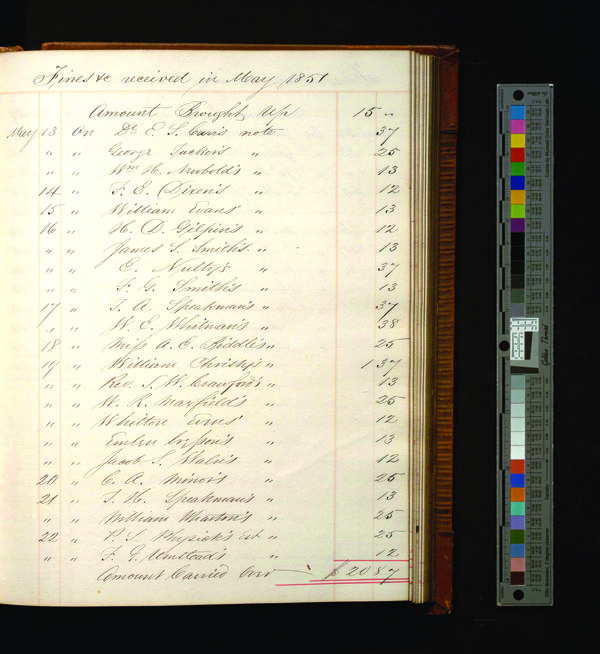 Fines &c received in May 1851
Amount Brought Up 15 "
May 13 On Dr. E. S. Carr's note 37
" " George Tucker's " 25
" " Wm. H. Newbold's " 13
14 " F. E. Dixon's " 12
15 " William Evans' " 13
16 " H. D. Gilpin's " 12
" " James S. Smith's " 13
" " E. Nulty's " 37
" " F. G. Smith's " 13
17 " T. A. Speakman's " 37
" " W. E. Whitman's " 38
18 " Miss A. E. Biddle's " 25
19 " William Christy's " 1 37
" " Rev. J. W. Crawford's " 13
" " W. R. Mayfield's " 25
" " Whilton Evens' " 12
" " Emlen 13
" " Jacob S. " 12
20 " C. A. Minor's " 25
21 " T. H. Speakman's " 13
" " William Wharton's " 25
22 " P. S. Physick's est " 25
" " F. G. Umstead's " 12
Amount Carried Over $ 20 87